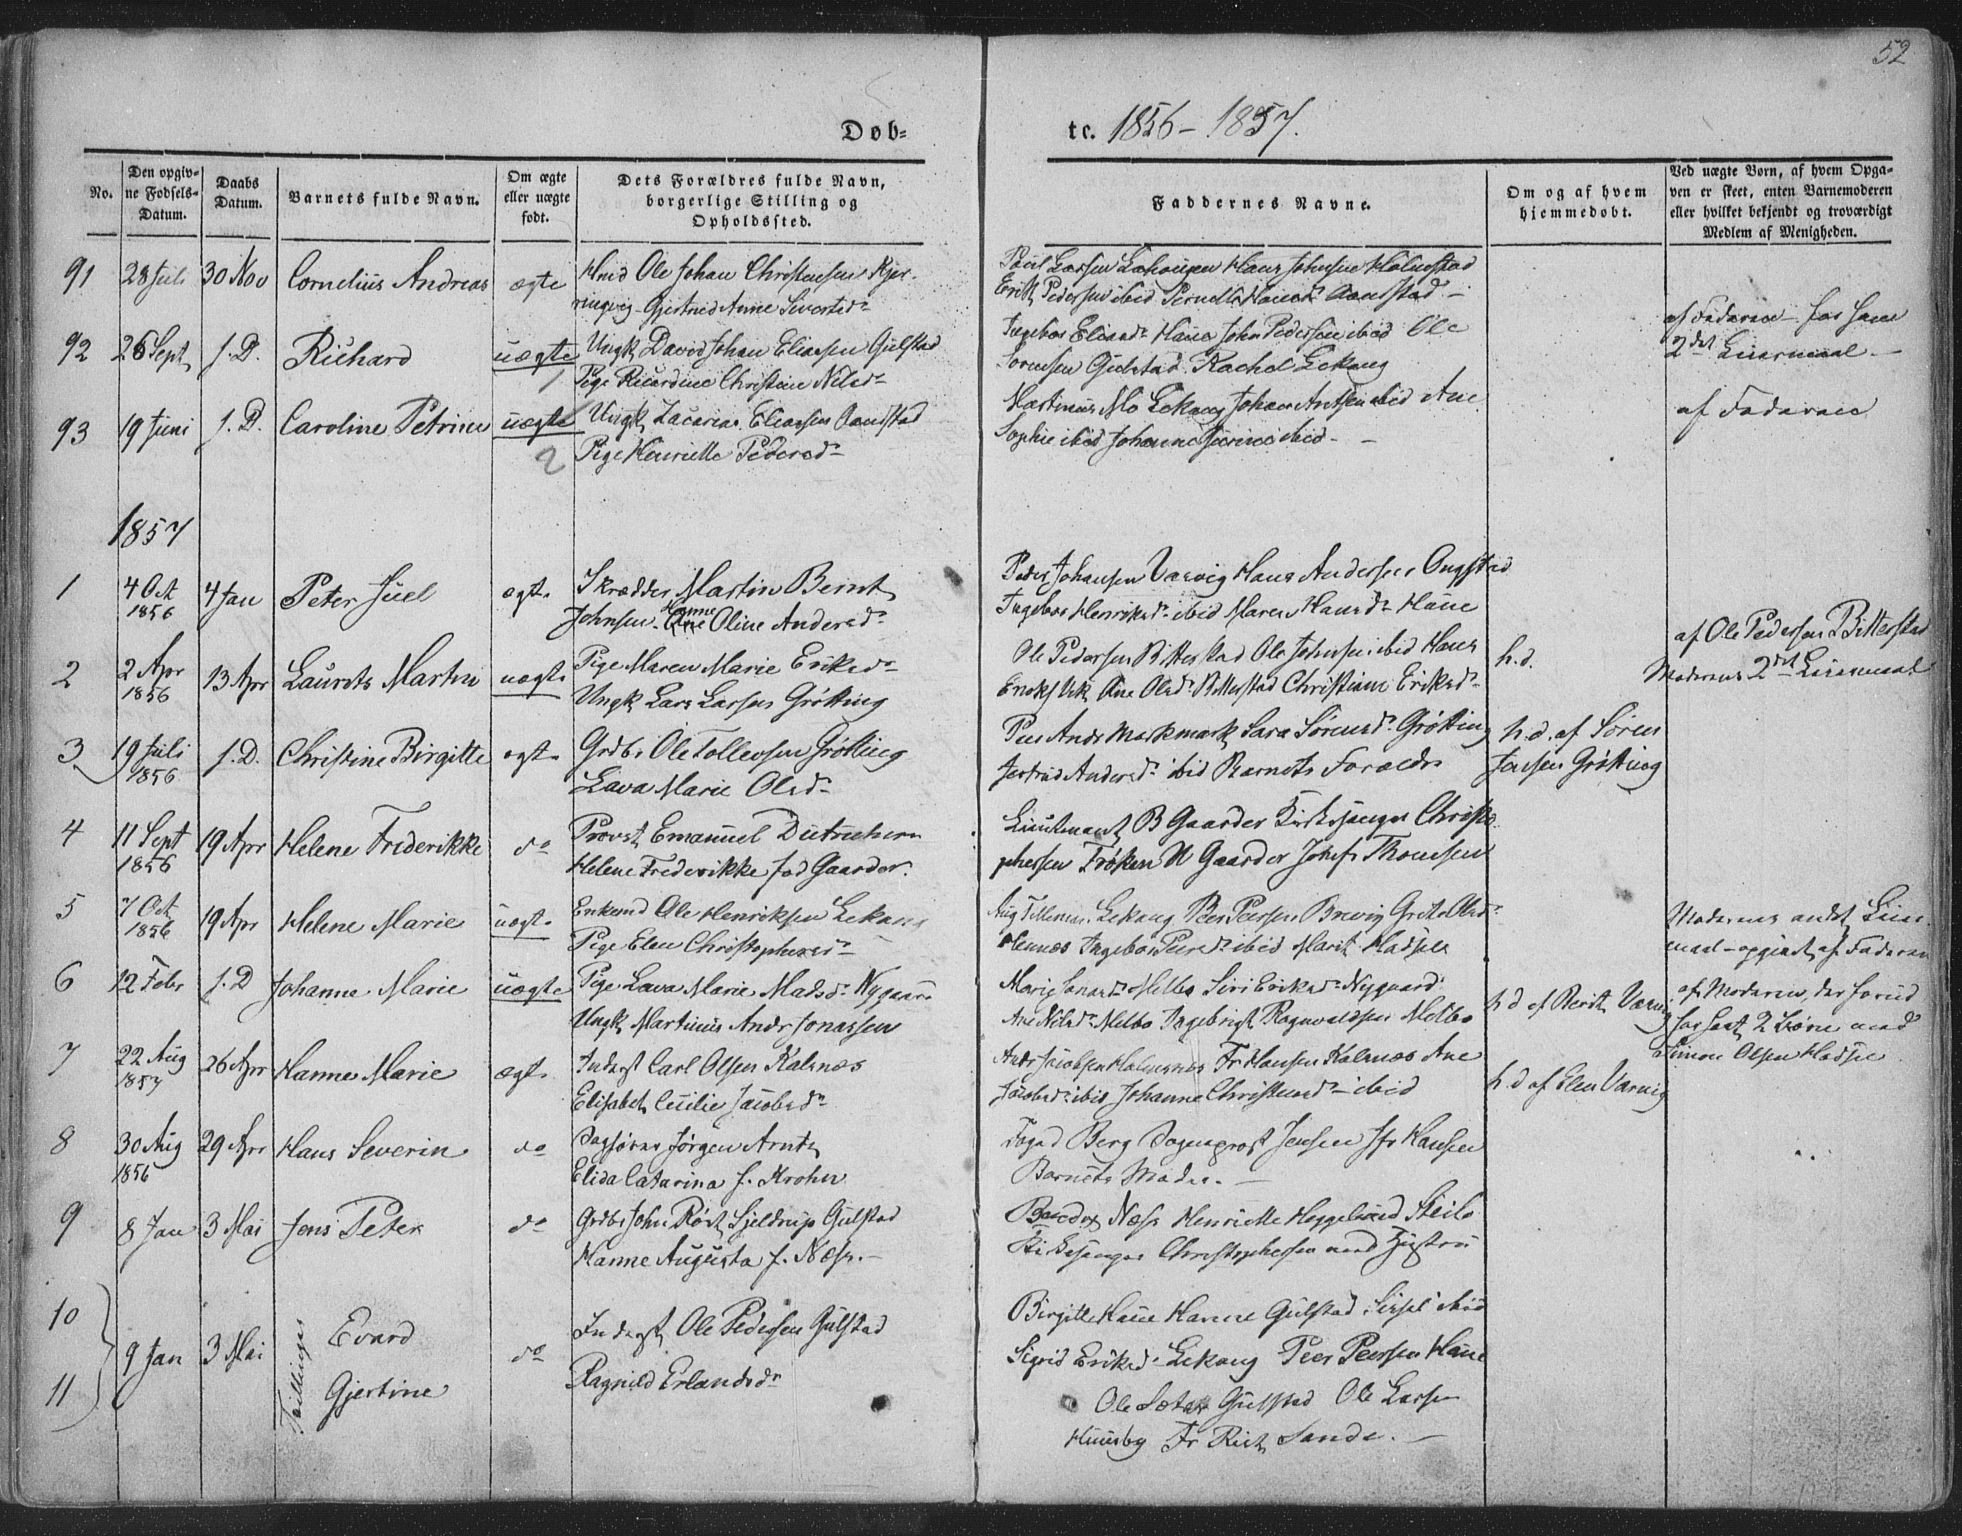 52
Døb- te. 1856 – 1857.
No.
Den opgiv-
ne Fødsels-
Datum.
Daabs
Datum.
Barnets fulde Navn.
Om ægte
eller uægte
født.
Dets Forældres fulde Navn,
borgerlige Stilling og
Opholdssted.
Faddernes Navne.
Om og af hvem
hjemmedøbt.
Ved uægte Børn, af hvem Opga-
ven er skeet, enten Barnemoderen
eller hvilket bekjendt og troværdigt
Medlem af Menigheden.
91 28 Juli 30 Nov Cornelius Andreas ægte
Hmd Ole Johan Christensen Kjer-
ringvig Gjertrud Anne Sivertsd.
Poul Larsen Hans Johnsen Holmstad
Erik Pedersen ibid Pernelle Aanstad –
92 26 Sept s. D. Richard uægte
1
Ungk David Johan Eliassen Gulstad
Pige Ricardine Christine Nilsd.
Ingebor Eliasd. Haue John Pedersen ibid Ole
Sorensen Gulstad Rachel Lekang
af Faderen for ham
2det Leiermaal –
93 19 Juni s. D. Caroline Petrine uægte
2
Ungk Zacarias Eliassen Aanstad
Pige Henriette Pedersd.
Martinus Mo Lekang Johan Antsen ibid Ane
Sophie ibid Johanne ibid –
af Faderen
1857
1 4 Oct 1856 4 Jan Peter Juel ægte
Skrædder Martin Bernt
Johnsen Hanne Oline Andersd.
Peder Johansen Varvig Hans Andersen Ongstad
Ingebor Henriksd. ibid Maren Hansd. Haue
2 2 Apr 1856 13 Apr Laurits Martin uægte
Pige Maren Marie Eriksd.
Ungk Lars Larsen Grøtting
Ole Pedersen Bitterstad Ole Johnsen ibid Hans
Ane Olsd. Bitterstad Christiane Eriksd.
h. d.
af Ole Pedersen Bitterstad
Moderens 2det Leiermaal
3 19 Juli 1856 s. D. Christine Birgitte ægte
Grdbr Ole Tollevsen Grøtting
Lava Marie Olsd.
Peer Ands Markmark Sara Sørensd. Grøtting
Jertrud Andersd. ibid Barnets Forældre
h. d. af Søren
Jensen Grøtting
4 11 Sept 1856 19 Apr Helene Frederikke do
Provst Emanuel Dietrichson
Helene Frederikke fød Gaarder.
Lieutnant B Gaarder Kirkesjanger Christo-
phersen Frøken H Gaarder Josef Thomsen
5 7 Oct 1856 19 Apr Helene Marie uægte
Enkemd Ole Henriksen Lekang
Pige Elen Christophersd.
Lekang Peer Peersen Breivig Grete Olsd.
Ingebor Peersd. ibid Marit Hadsel
Moderens andet Leier-
maal – opgivet af Faderen
6 12 Febr s. D Johanne Marie uægte
Pige Lava Marie Madsd. Nygaard
Ungk Martinus Andr Jonassen
Marie Melbo Siri Eriksd. Nygaard
Ane Nilsd. Melbo Ingebrigt Ragnvaldsen Melbo
h. d af Berit Varvig
af Moderen, der forud
har havt 2 Børn med
Simon Olsen Hadsel
7 22 Aug 1857 26 Apr Hanne Marie ægte
Inderst Carl Olsen Kalsnæs
Elisabet Cecilie Jacobsd.
Andr Jacobsen Fr Hansen Kalsnæs Ane
Jacobsd. ibid Johanne Christensd. – ibid
h. d af Elen Varvig
8 30 Aug 1856 29 Apr Hans Severin do
Sagfører Jørgen Arntz
Elida Catarina f. Krohn
Foged Berg Sogneprest Jensen Jfr Hansen
Barnets Moder. –
9 8 Jan 3 Mai Jens Peter do
Grdbr John Røst Sjeldrup Gulstad
Hanne Augusta f. Næss. –
Næss Henriette Heggelund Steilo
Kirkesanger Christophersen med Hustru
10
11 9 Jan 3 Mai Tvillinger
Evard
Gjertine
do
Inderst Ole Pedersen Gulstad
Ragnild Erlandsd.
Birgitte Haue Hanne Gulstad Sirsel ibid
Sigrid Eriksd. Lekang Peer Peersen Haue
Ole Sæter Gulstad Ole Larsen
Huusby Fr Rist Sande. –